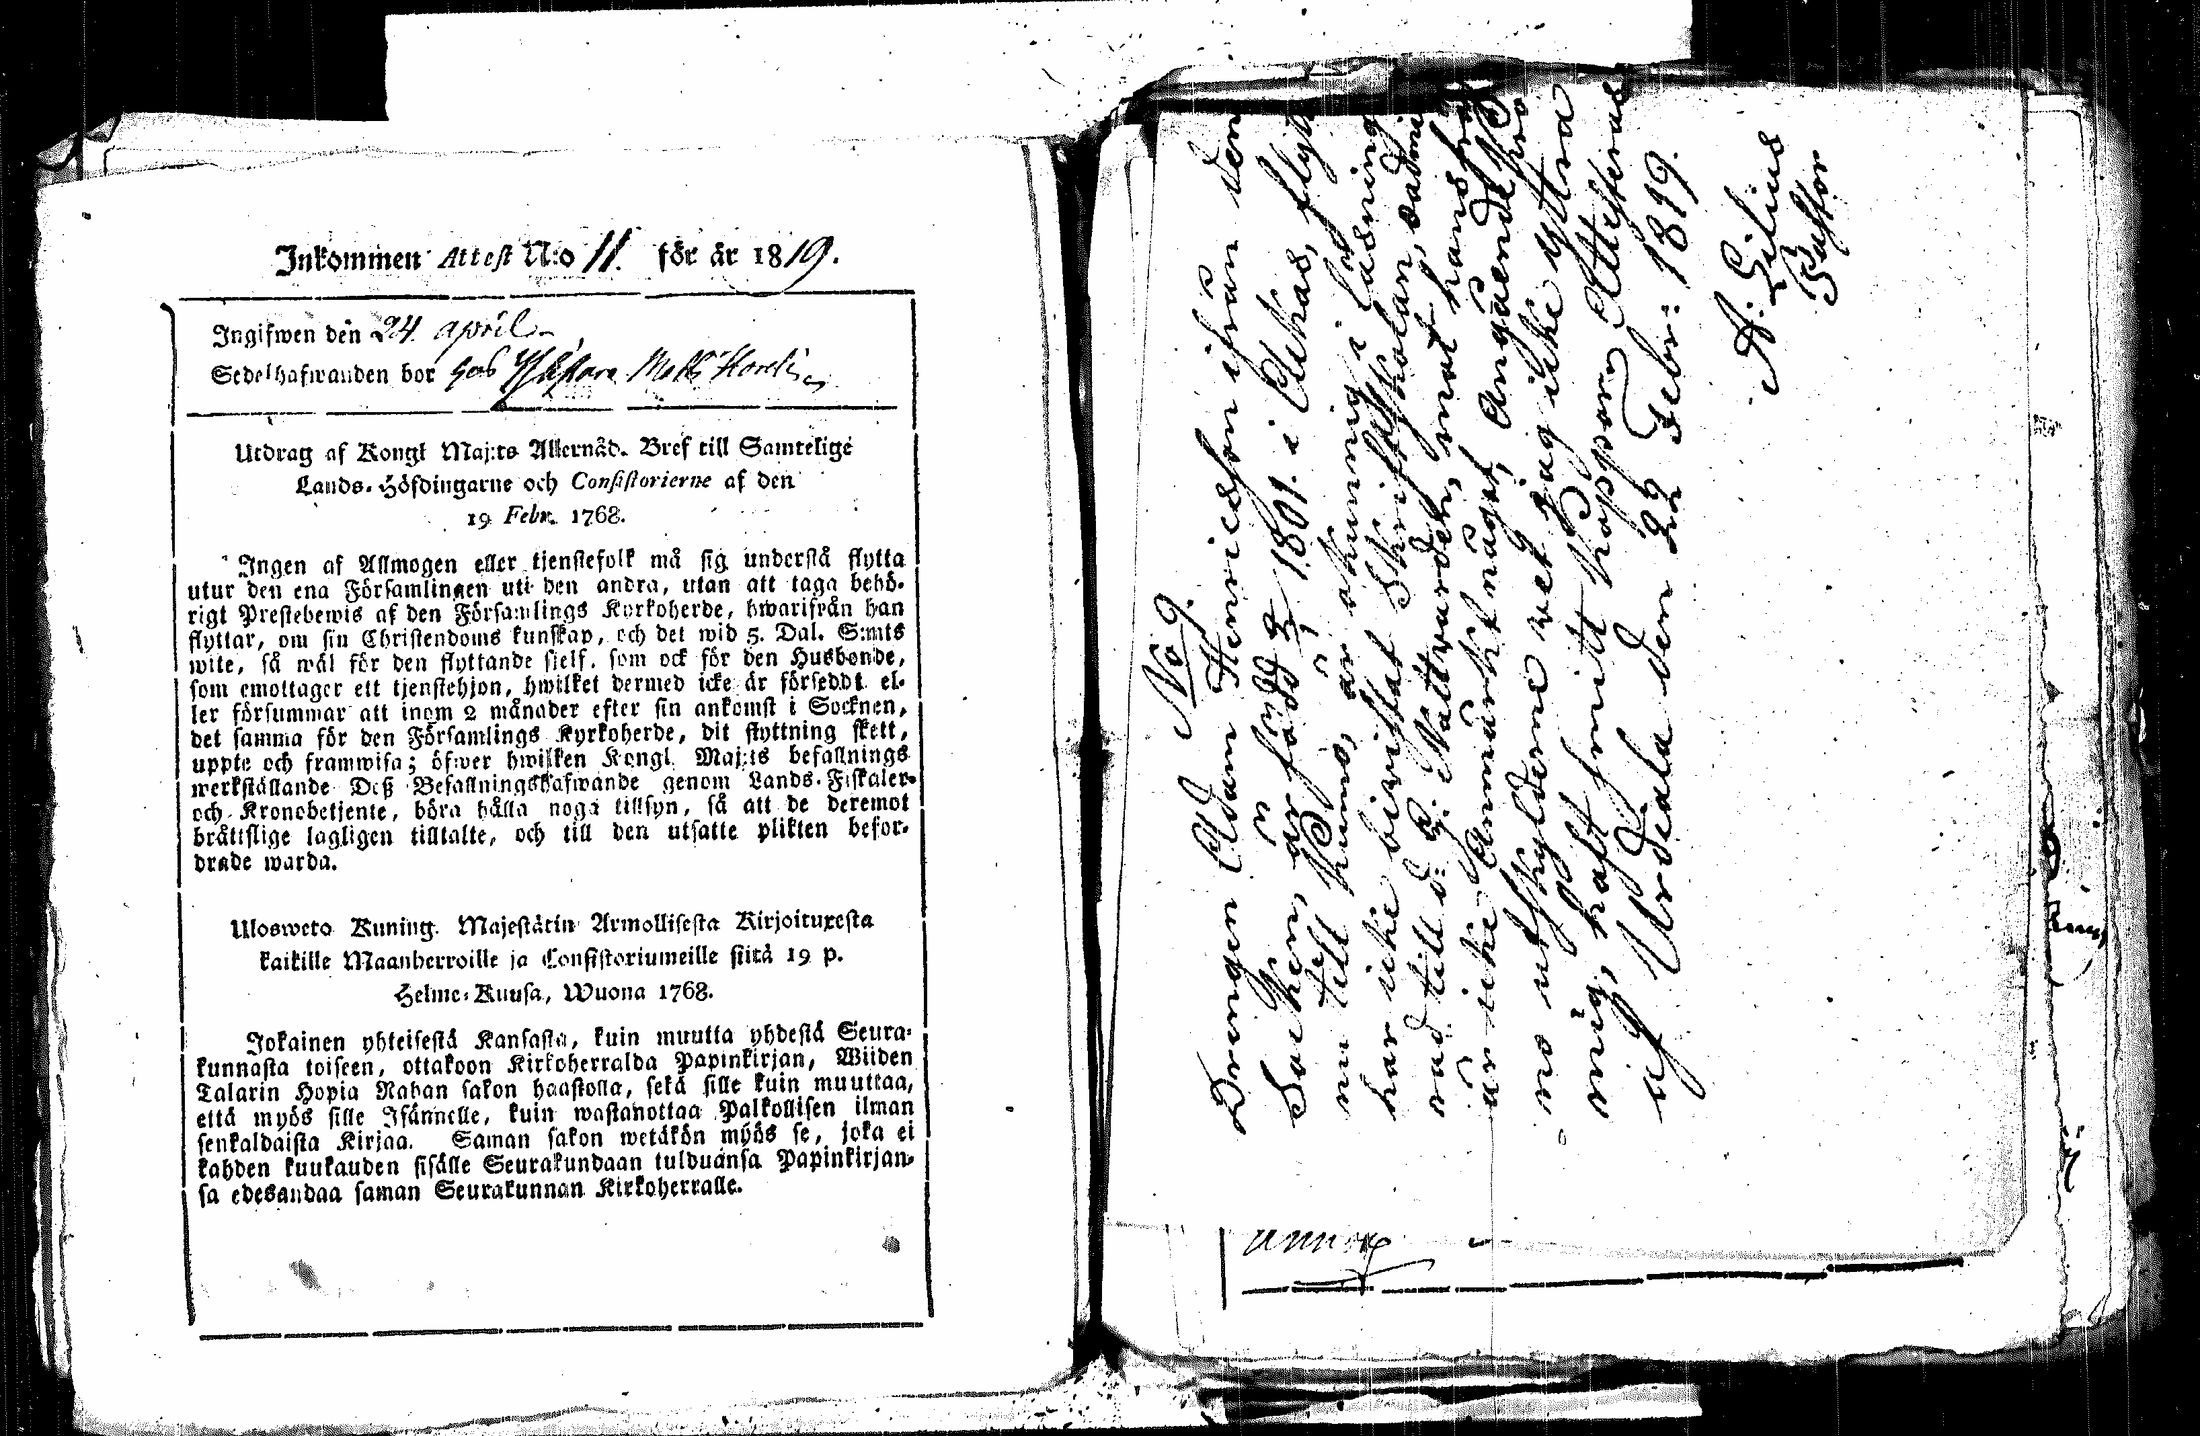 Inkommen Attest N:o 11. för år 1819.
Ingifwen den 24 april
Sedelhafwanden bor hos
Utdrag af Kongl Maj:ts Allernåd. Bref till Samtelige
Lands-Höfdingarne och Consistorierne af den
19 Febr. 1768.
Ingen af Allmogen eller tjenstefolk må sig understå flytta
utur den ena Församlingen uti den andra, utan att taga behö-
rigt Prestebewis af den Församlings Kyrkoherde, hwarifrån han
flyttar, om sin Christendoms kunskap, och det wid 5. Dal. S:mts
wite, så wäl för den flyttande sielf, som ock för den Husbonde,
som emottager ett tjenstehjon, hwilket dermed icke är förseddt el-
ler försummar att inom 2 månader efter sin ankomst i Socknen,
det samma för den Församlings Kyrkoherde, dit flyttning skett,
uppte och framwisa; öfwer hwilken Kongl. Maj:ts befallnings
werkställande Deß Befallningshafwande genom Lands-Fiskaler-
och Kronobetjente, böra hålla noga tillsyn, så att de deremot
bråttslige lagligen tilltalte, och till den utsatte plikten befor-
drade warda.
Ulosweto Kuning. Majestätin Armollisesta Kirjoituxesta
kaikille Maanherroille ja Consistoriumeille siitä 19 p.
Helme-Kuusa, Wuona 1768.
Jokainen yhteisestä Kansasta, kuin muutta yhdestä Seura-
kunnasta toiseen, ottakoon Kirkoherralda Papinkirjan, Wiiden
Talarin Hopia Rahan sakon haastolla, sekä sille kuin muuttaa,
että myös sille Isännelle, kuin wastanottaa Palkollisen ilman
senkaldaista Kirjaa. Saman sakon wetäkön myös se, joka ei
kahden kuukauden sisälle Seurakundaan tulduansa Papinkirjan-
sa edesandaa saman Seurakunnan Kirkoherralle.
No 9.
Drengen Adam Henricsson ifrån den
Socken, är född 1801. i Akas, flytt
nu till Kumo, är okunnig i läsning
har icke bivistat Skriftskolan, admit
rad till d: H: Nattvarden, mot hans frägd
är icke Anmärkt något, Angående
no utskylderne vet jag icke yttra
mig, haft smitt koppor, Attesteras
af Urdiala den 22 Febr: 1819.
A. Gilius
Pastor